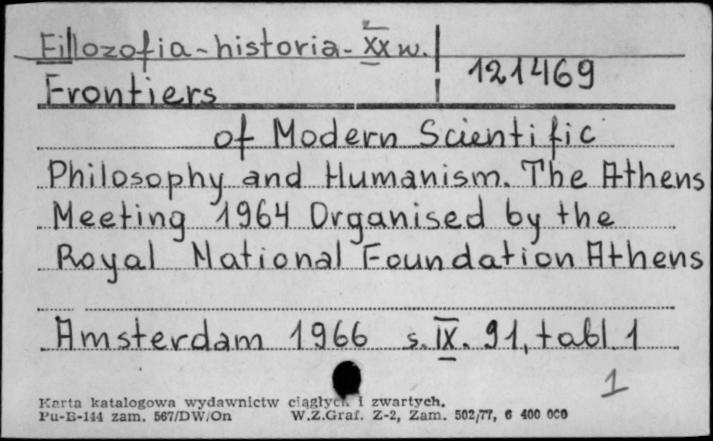 Filozofia-historia-XX w.
121469
Frontiers
of Modern Scientific
Philosophy and Humanism. The Athens
Meeting 1964 Organised by the
Royal National Foundation Athens
Amsterdam 1966 s. IX. 91, tabl 1
1
Karta katalogowa wydawnictw ciągłych i zwartych.
Pu-B-144 zam. 567/DW/On W.Z.Graf. Z-2, Zam. 502/77, 6 400 000